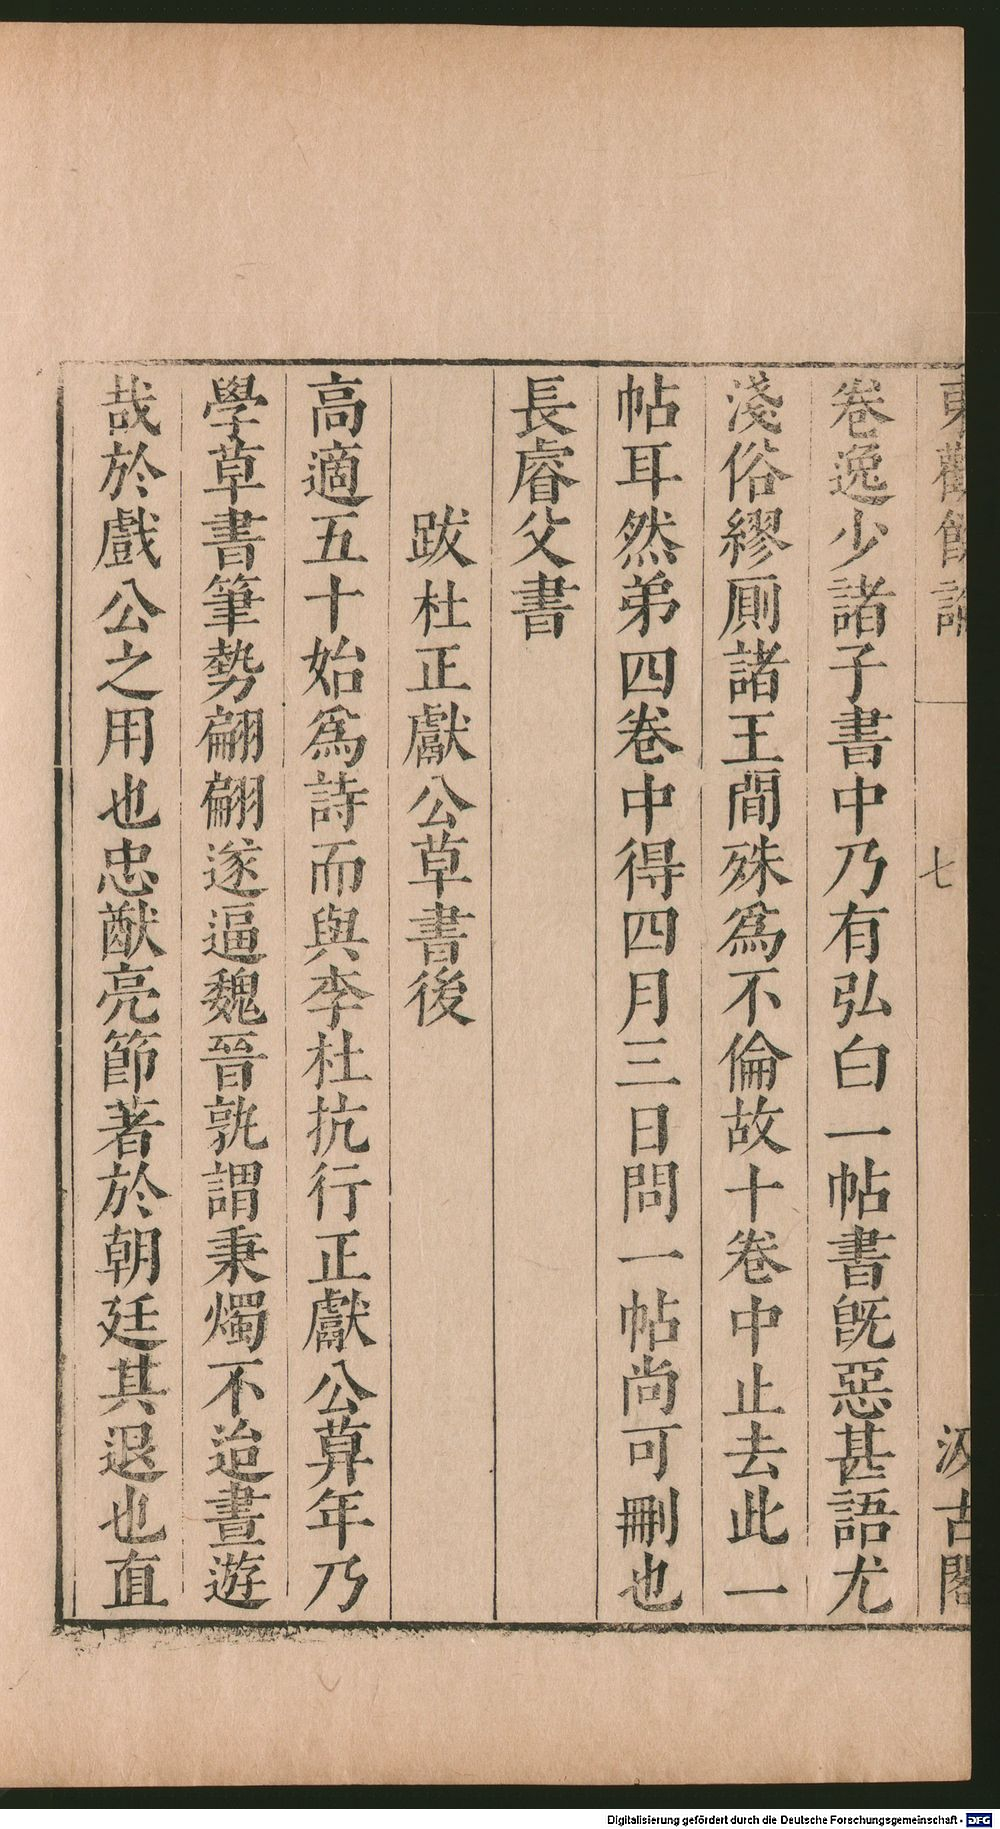 東觀餘論 七 汲古閣
卷逸少諸子書中乃有弘白一帖書旣惡甚語尤
淺俗繆厠諸王間殊爲不倫故十卷中止去此一
帖耳然弟四卷中得四月三日問一帖尚可刪也
長睿父書
跋杜正獻公草書後
高適五十始爲詩而與李杜抗行正獻公暮年乃
學草書筆勢翩翩遂逼魏晉孰謂秉燭不迨晝遊
哉於戲公之用也忠猷亮節著於朝廷其退也直
Digitalisierung gefördert durch die Deutsche Forschungsgemeinschaft - DFG